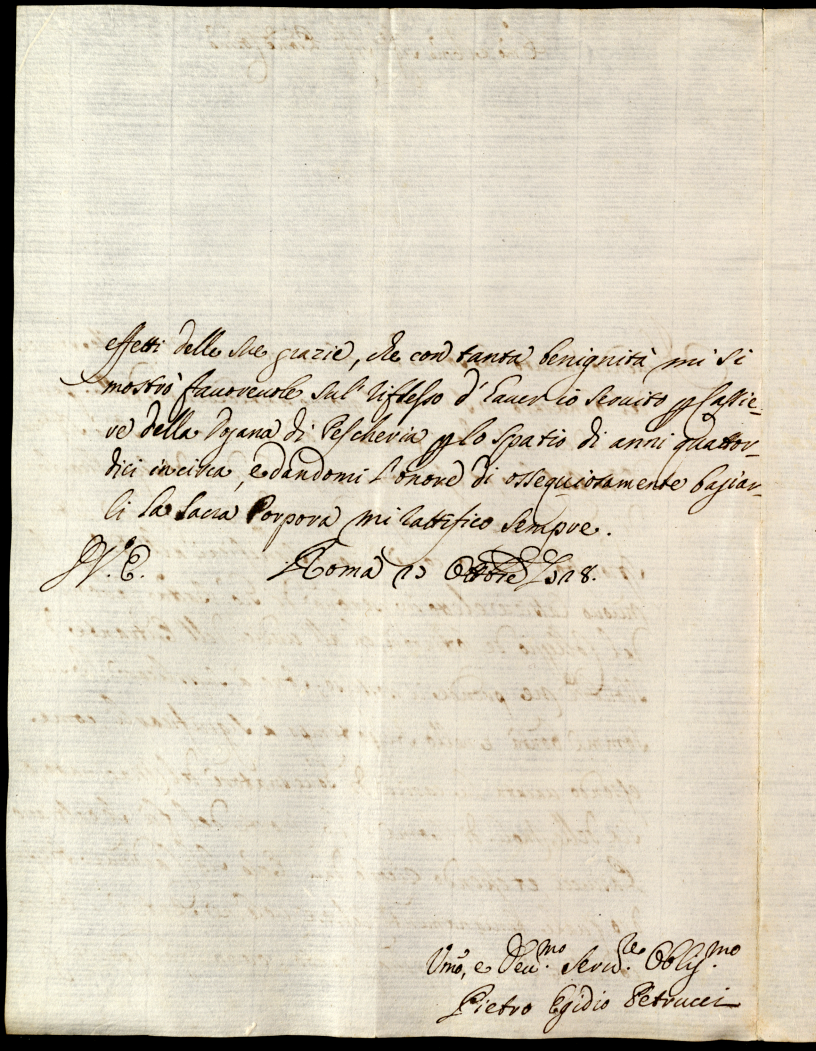 effetti delle Sue grazie, che con tanta benignità mi si
mostrò favorevole sul riflesso d'haver io servito p Cassie-
re della Dogana di Pescheria p lo spatio di anni quattor-
dici in circa, e dandomi l'onore di ossequiosamente bagiar-
li la Sacra Porpora mi ratifico sempre.
V. E. Roma 13 Ottobre 1728.
Umo, e Deumo Servre Obligmo
Pietro Egidio Petrucci